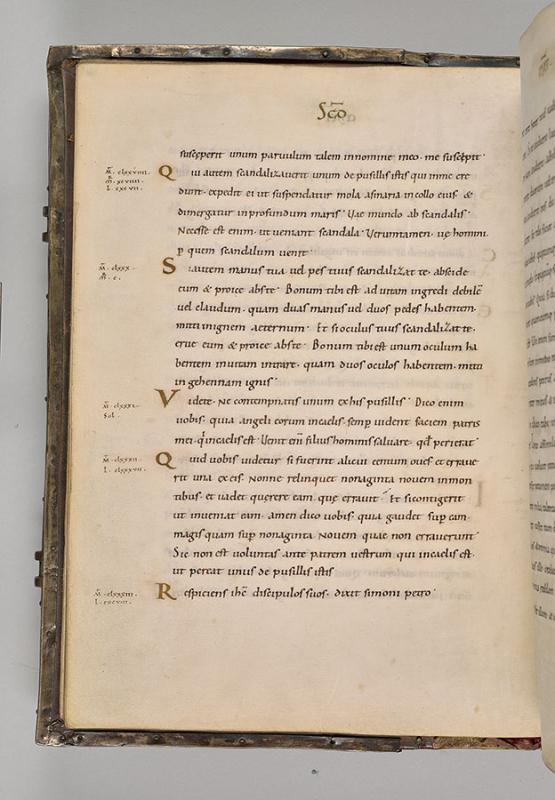 Scd̄o
susceperit unum paruulum talem innomine meo · me suscepit ·
Q ui autem scandalizauerit unum de pusillis istis qui inme cre
dunt · expedit ei ut suspendatur mola asinaria incollo eius &
dimergatur inprofundum maris · Uae mundo ab scandalis ·
Necesse est enim · ut ueniant scandala · Uerumtamen · uę homini ·
ꝑ quem scandalum uenit ·
S i autem manus tua uel pes tuus scandalizat te · abscide
eum & proice abste · Bonum tibi est aduitam ingredi debilē
uel claudum · quam duas manus ud duos pedes habentem ·
mitti inignem aeternum · Et sioculus tuus scandalizat te ·
erue eum & proice abste · Bonum tibi est unum oculum ha
bentem inuitam intrare · quam duos oculos habentem · mitti
in gehennam ignis ·
V idete · Ne contempnatis unum exhis pusillis · Dico enim
uobis · quia angeli eorum incaelis · semꝑ uident faciem patris
mei · qui incaelis est · Uenit eni filius hominis saluare · qđ perierat ·
Q uid uobis uidetur si fuerint alicui centum oues et erraue
rit una ex eis · Nonne relinquet nonaginta nouem inmon
tibus · et uadet querere eam · quę errauit · Et sicontigerit
ut inueniat eam · amen dico uobis · quia gaudet suꝑ eam ·
magis quam suꝑ nonaginta Nouem quae non errauerunt ·
Sic non est uoluntas ante patrem uestrum qui incaelis est ·
ut pereat unus de pusillis istis
R espiciens ihc̄ discipulos suos · dixit simoni petro ·